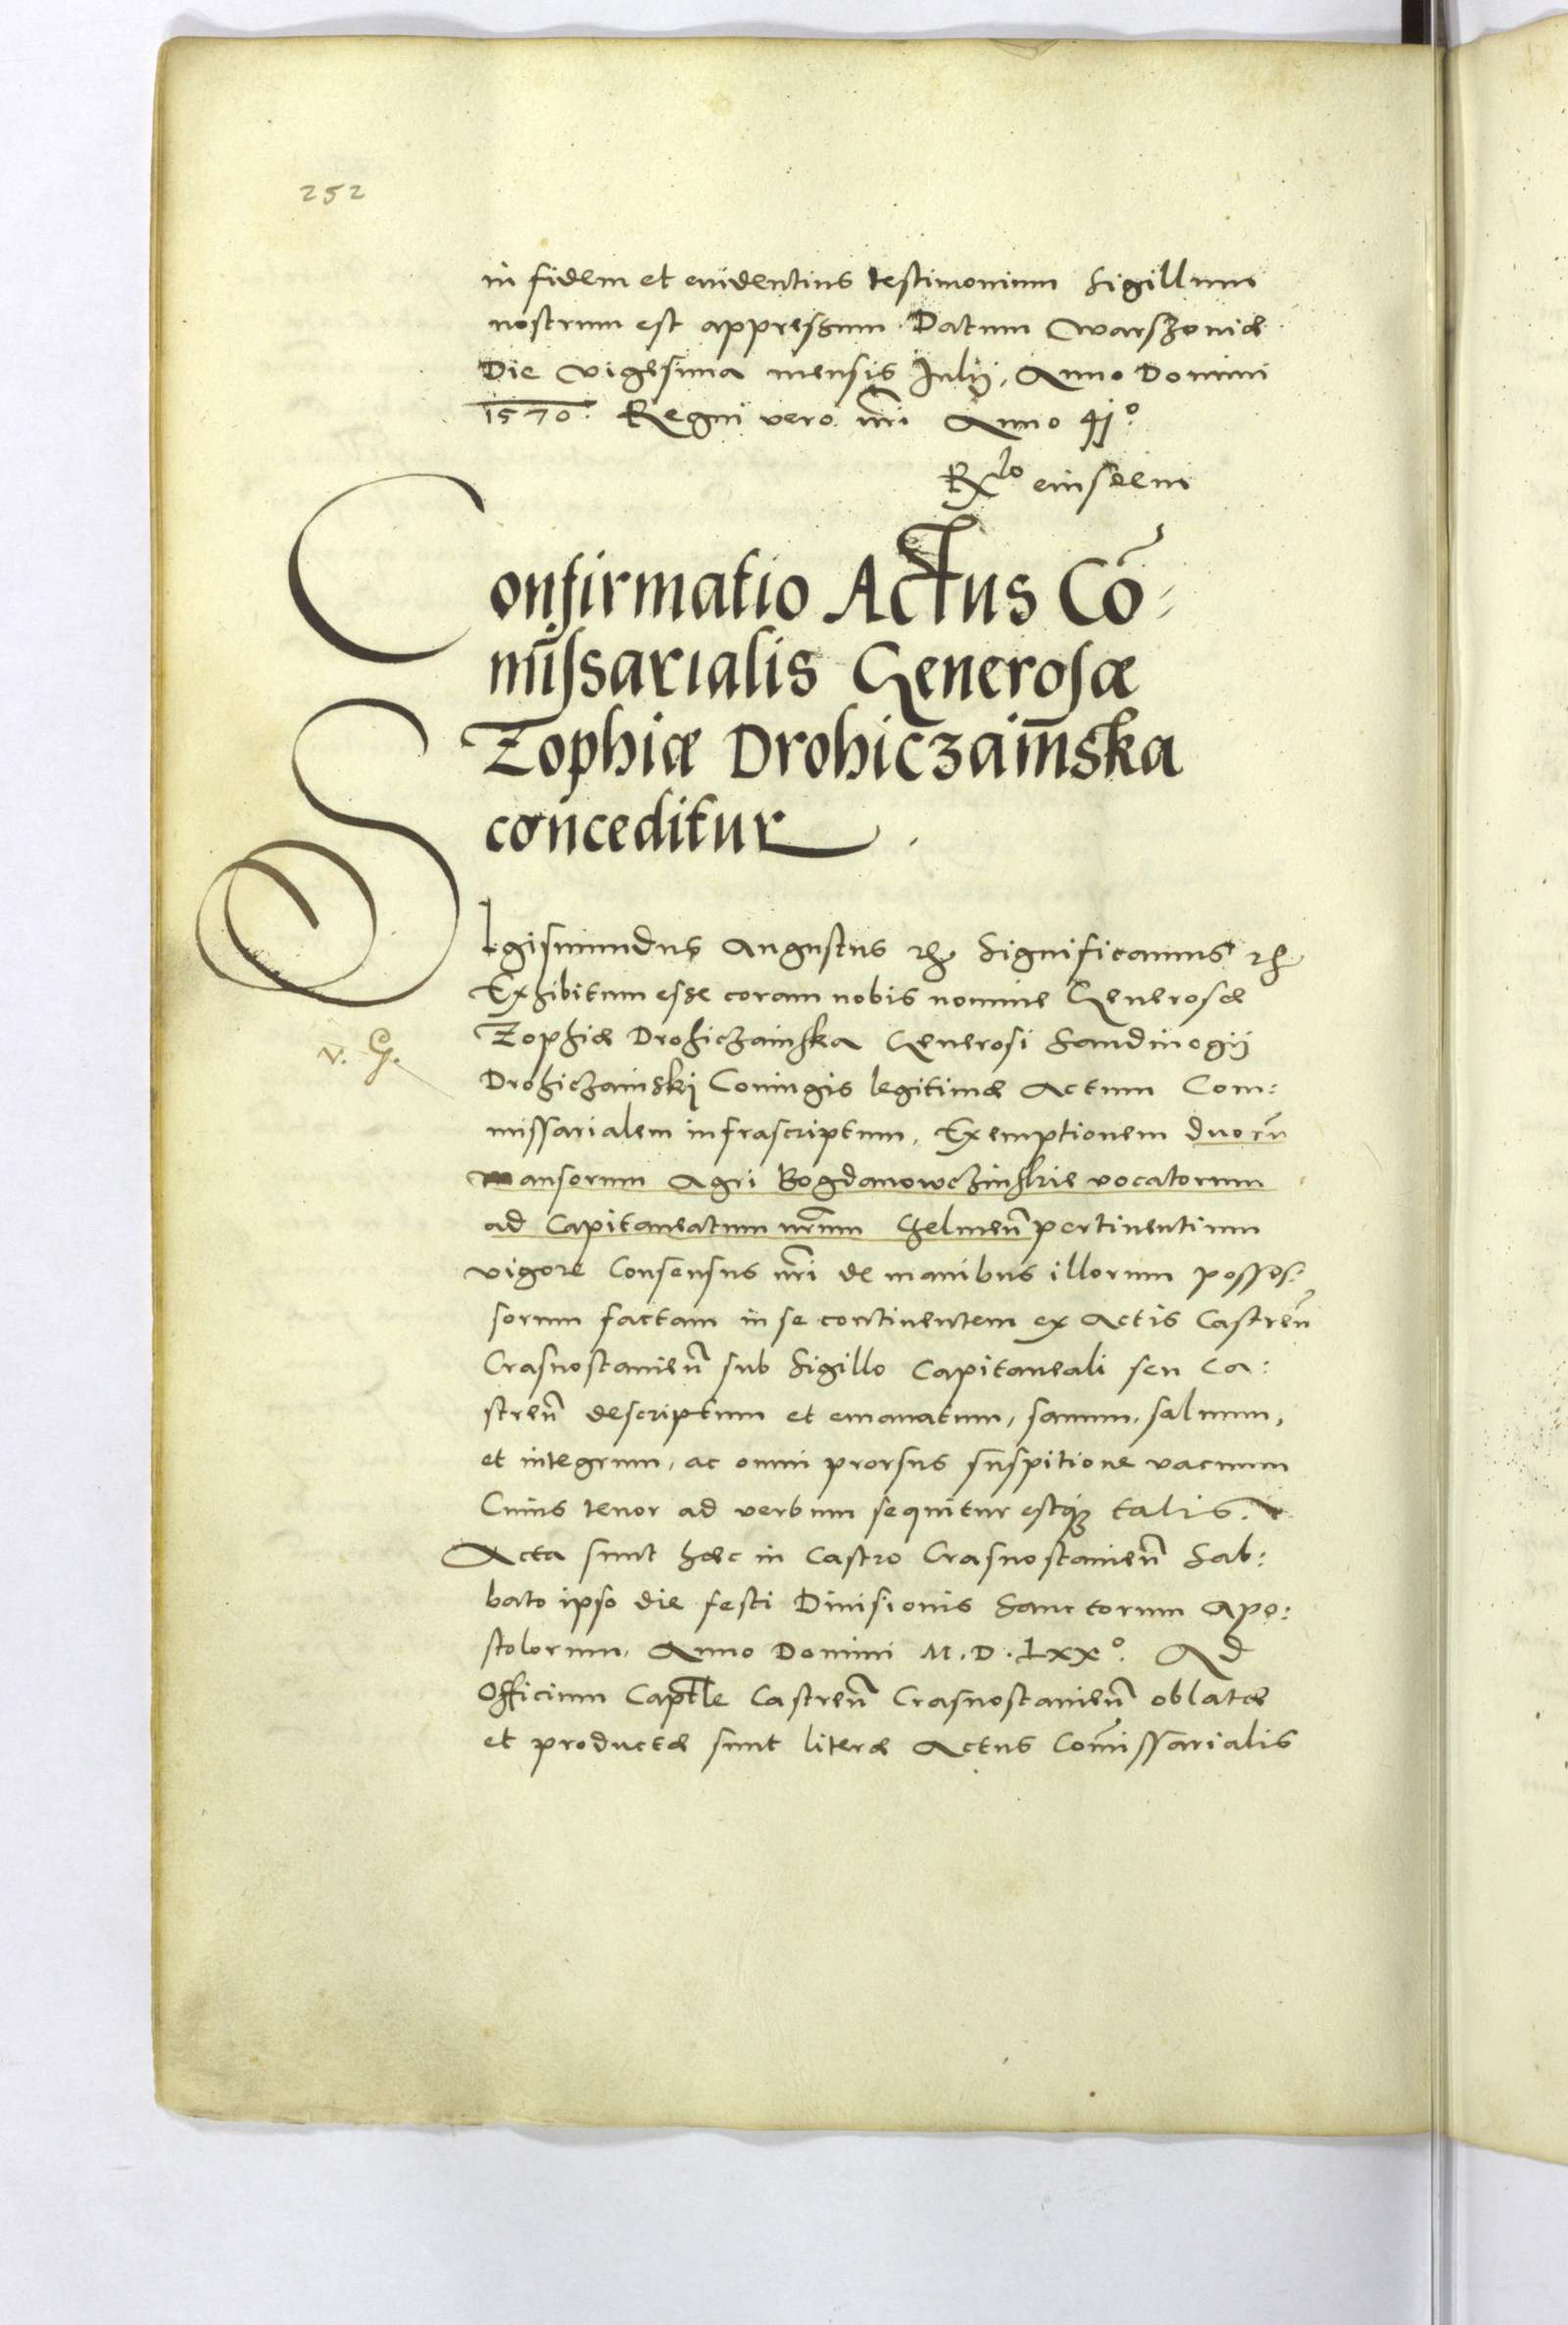 252
in fidem et euidentius testimonium Sigillum
nostrum est appressum. Datum Warszouiæ
Die vigesima mensis Julij, Anno Domini
1570. Regni vero nr̃i Anno 41º.
R<sup>lo</sup> eiusdem
Confirmatio Actus Cõ=
mĩssarialis Generosæ
Zophiæ Drohiczaiñska
conceditur.
SIgismundus Augustus etc. Significamus etc.
Exhibitum esse coram nobis nomine Generosæ
Zophiæ Drohiczainska Generosi Sandiuogij
v. G.
Drohiczainskj Coniugis legitimæ Actum Com:
missarialem infrascriptum, Exemptionem duorũ
mansorum Agri Bogdanowczinskie vocatorum
ad Capitaneatum nr̃um Chelmeñ pertinentium
vigore Consensus nr̃i de manibus illorum posses:
sorum factam in se continentem ex Actis Castreñ
Crasnostauieñ sub Sigillo Capitaneali seu Ca:
streñ descriptum et emanatum, sanum, saluum,
et integrum, ac omni prorsus suspitione vacuum
Cuius tenor ad verbum sequitur estq; talis.
Acta sunt hæc in Castro Crasnostauieñ Sab:
bato ipso die festi Diuisionis Sanctorum Apo:
stolorum, Anno Domini M.D.LXXº. Ad
Officium Captłe Castreñ Crasnostauieñ oblatæ
et productæ sunt literæ Actus Com̃issarialis